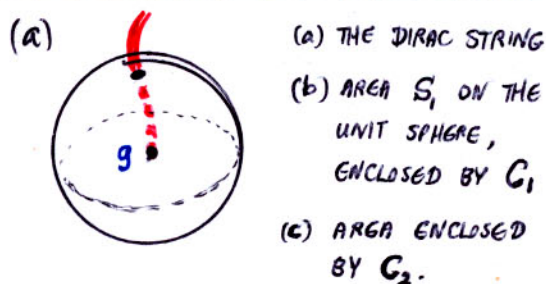 (a)
(a) THE DIRAC STRING
(b) AREA S₁ ON THE
UNIT SPHERE,
ENCLOSED BY C₁
g
(c) AREA ENCLOSED
BY C₂.